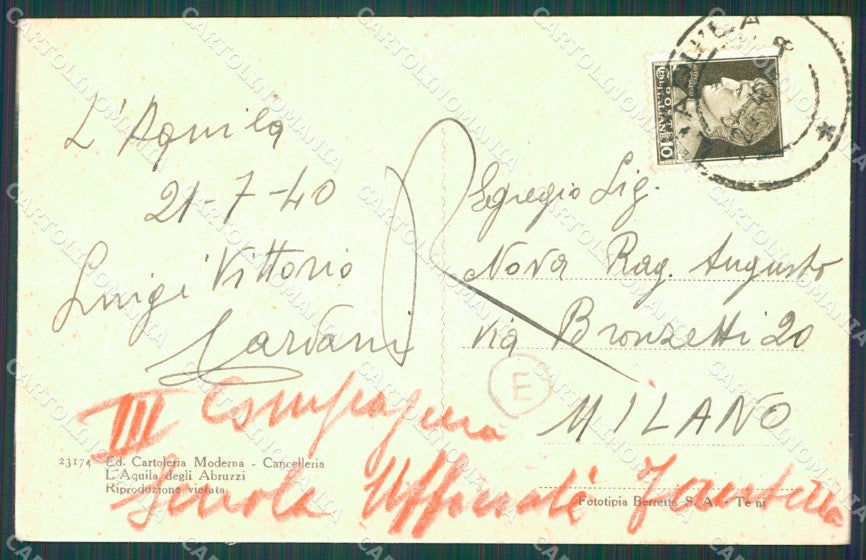 L'Aquila
21-7-40
Luigi Vittorio
III Compagnia
Scuola Ufficiali Fanteria
Egregio Sig.
Nova Rag. Augusto
via Bronzetti 20
MILANO
E
POSTE
ITALIANE 10
AQUILA
23174 Ed. Cartoleria Moderna - Cancelleria
L'Aquila degli Abruzzi
Riproduzione vietata
Fototipia Berretta S. A. - Terni
CARTOLINOMANIA